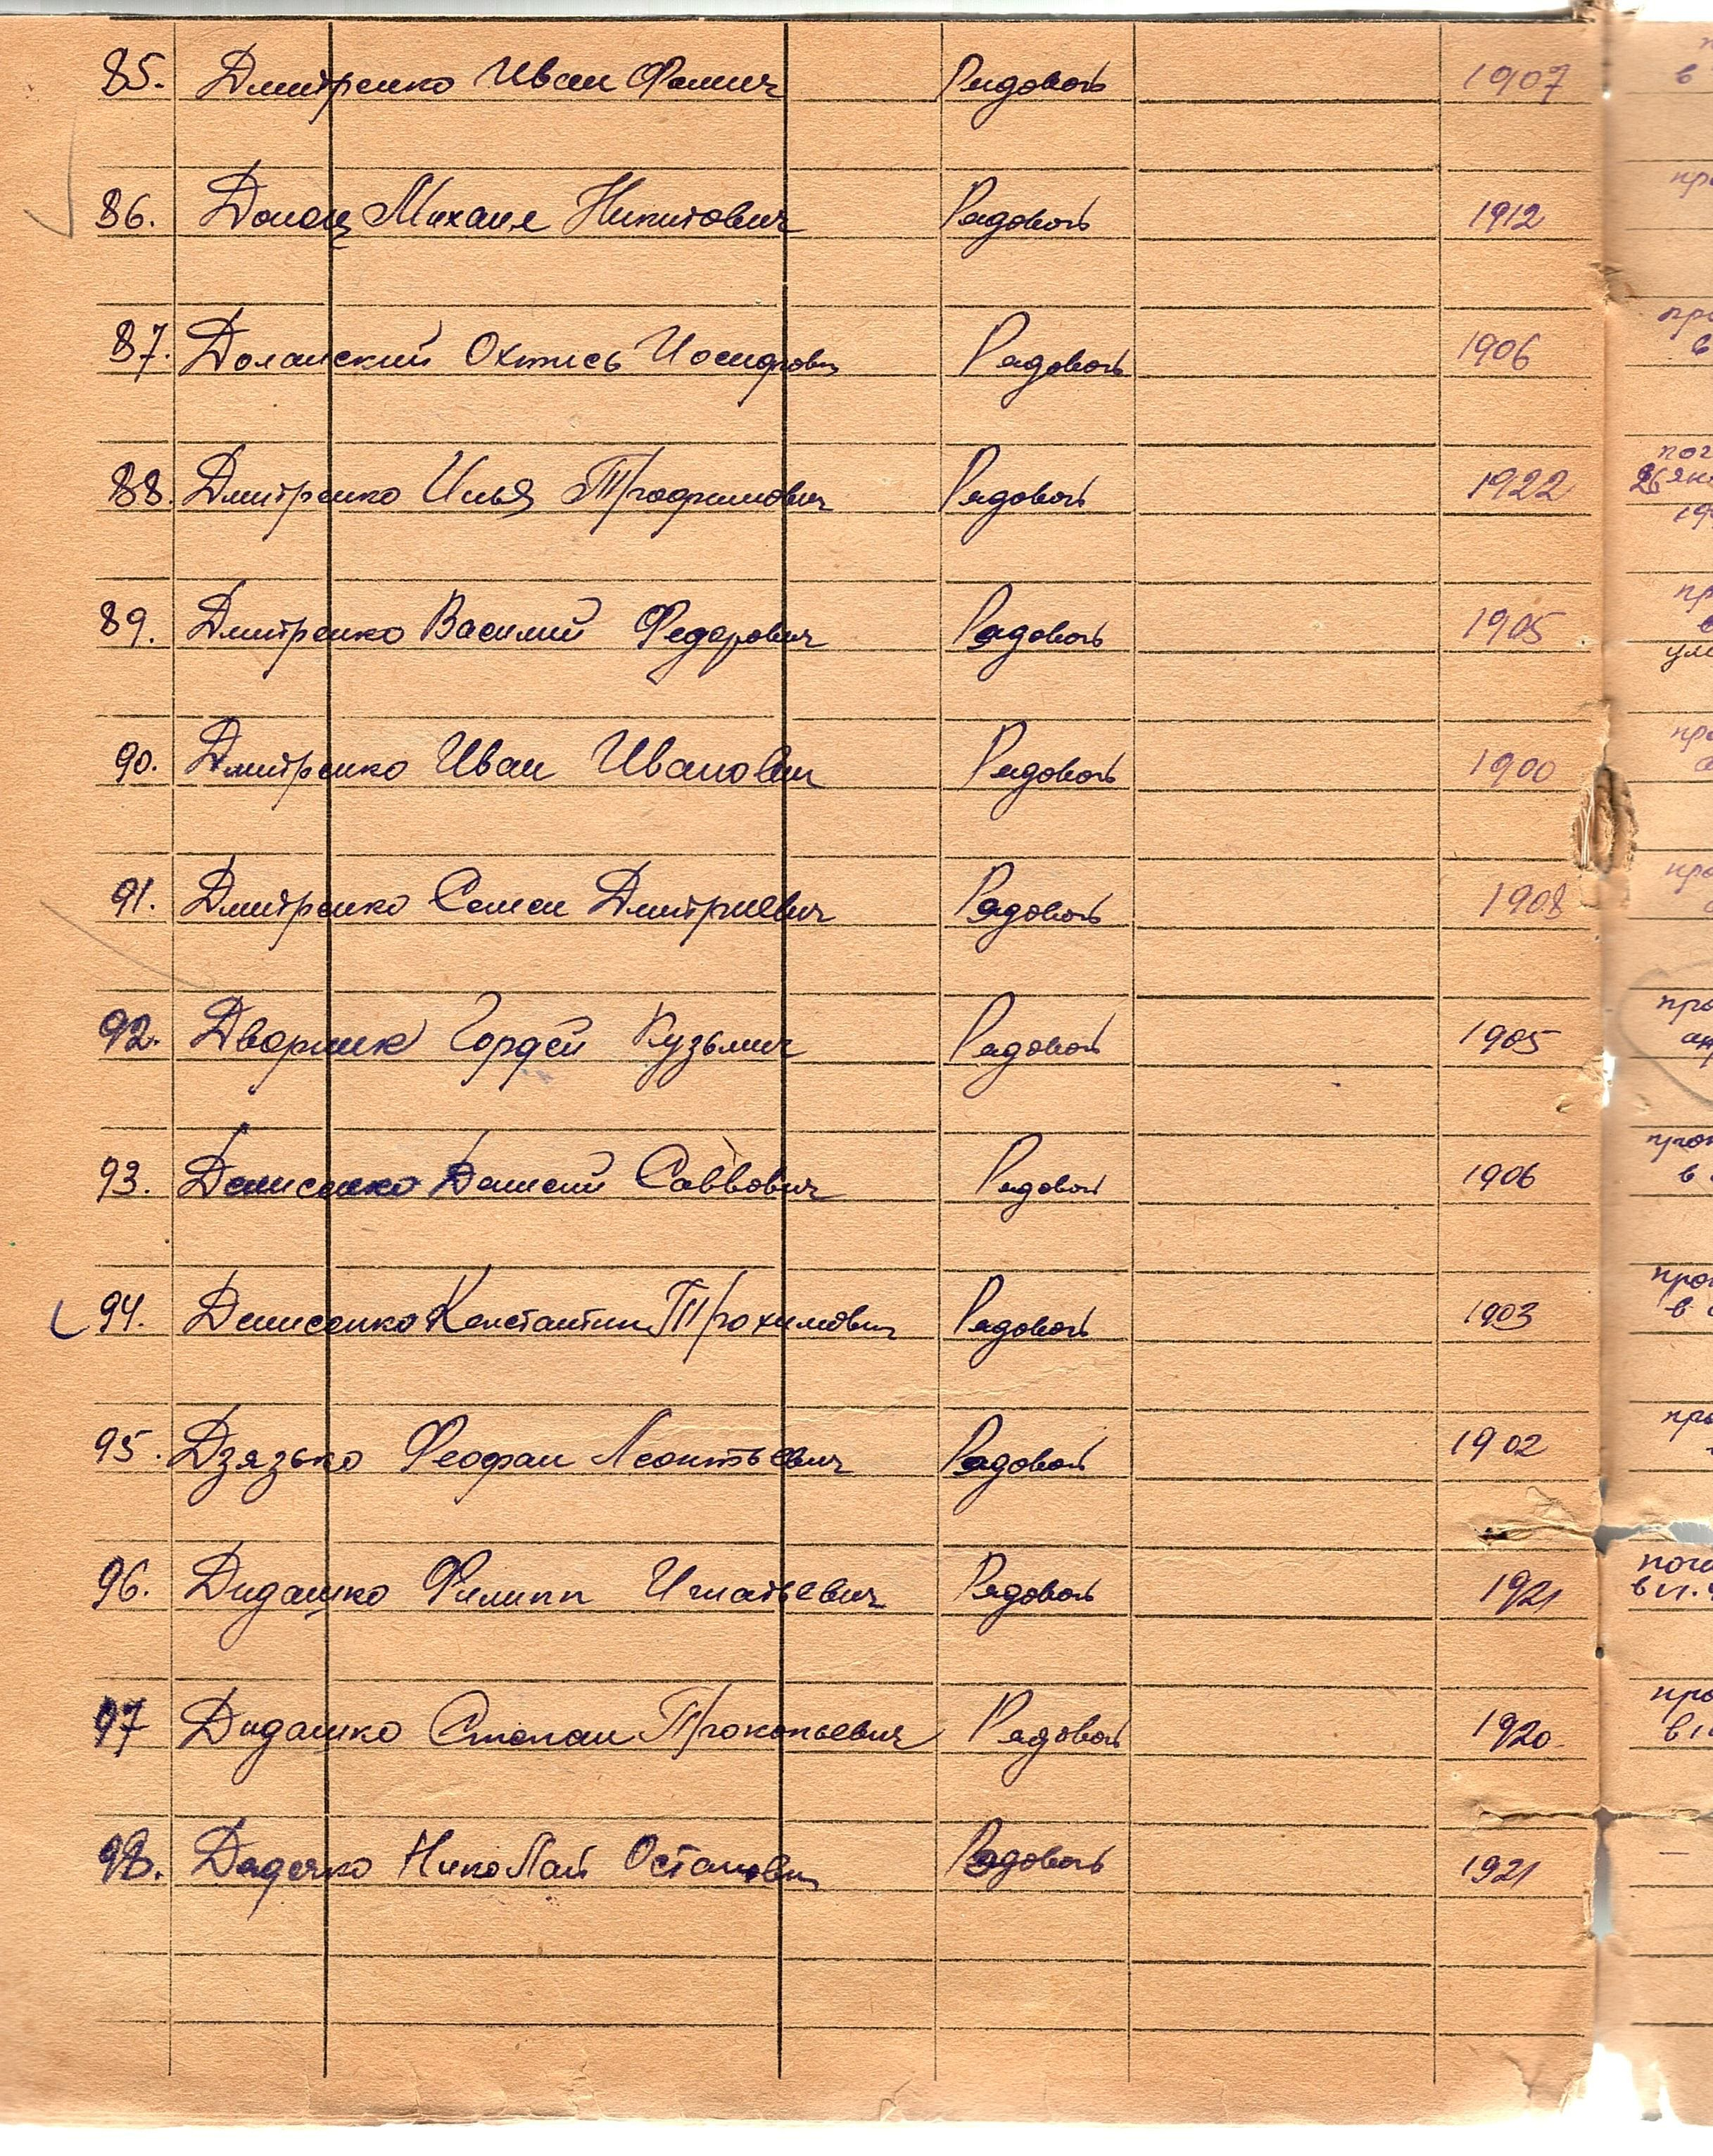 85. Дмитренко Иван Фомич Рядовой 1907 в
86. Донец Михаил Никитович Рядовой 1912 пр
87. Доланский Охтись Иосифович Рядовой 1906 пр
в
88. Дмитренко Илья Трофимович Рядовой 1922 пог
26 янв
19
89. Дмитренко Василий Федорович Рядовой 1905 пр
90. Дмитренко Иван Иванович Рядовой 1900 пр
91. Дмитренко Семен Дмитриевич Рядовой 1908 пр
92. Дворник Гордей Кузьмич Рядовой 1905 пр
ап
93. Денисенко Денисий Саввович Рядовой 1906 проп
в
94. Денисенко Константин Трохимович Рядовой 1903 проп
в
95. Дзязько Феофан Леонтьевич Рядовой 1902 пр
96. Дидашко Филипп Игнатьевич Рядовой 1921 поги
в
97 Дидашко Степан Прокопьевич Рядовой 1920 про
в
98. Дядечко Николай Остапович Рядовой 1921 —